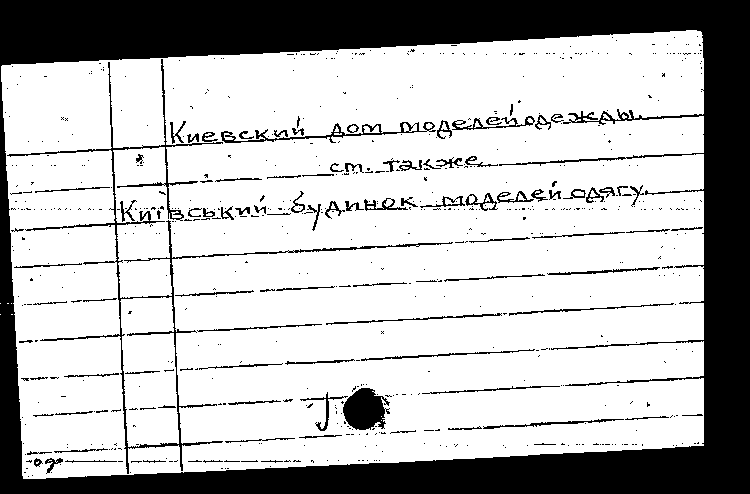 Киевский дом моделей одежды.
см. также
Київський будинок моделей одягу.